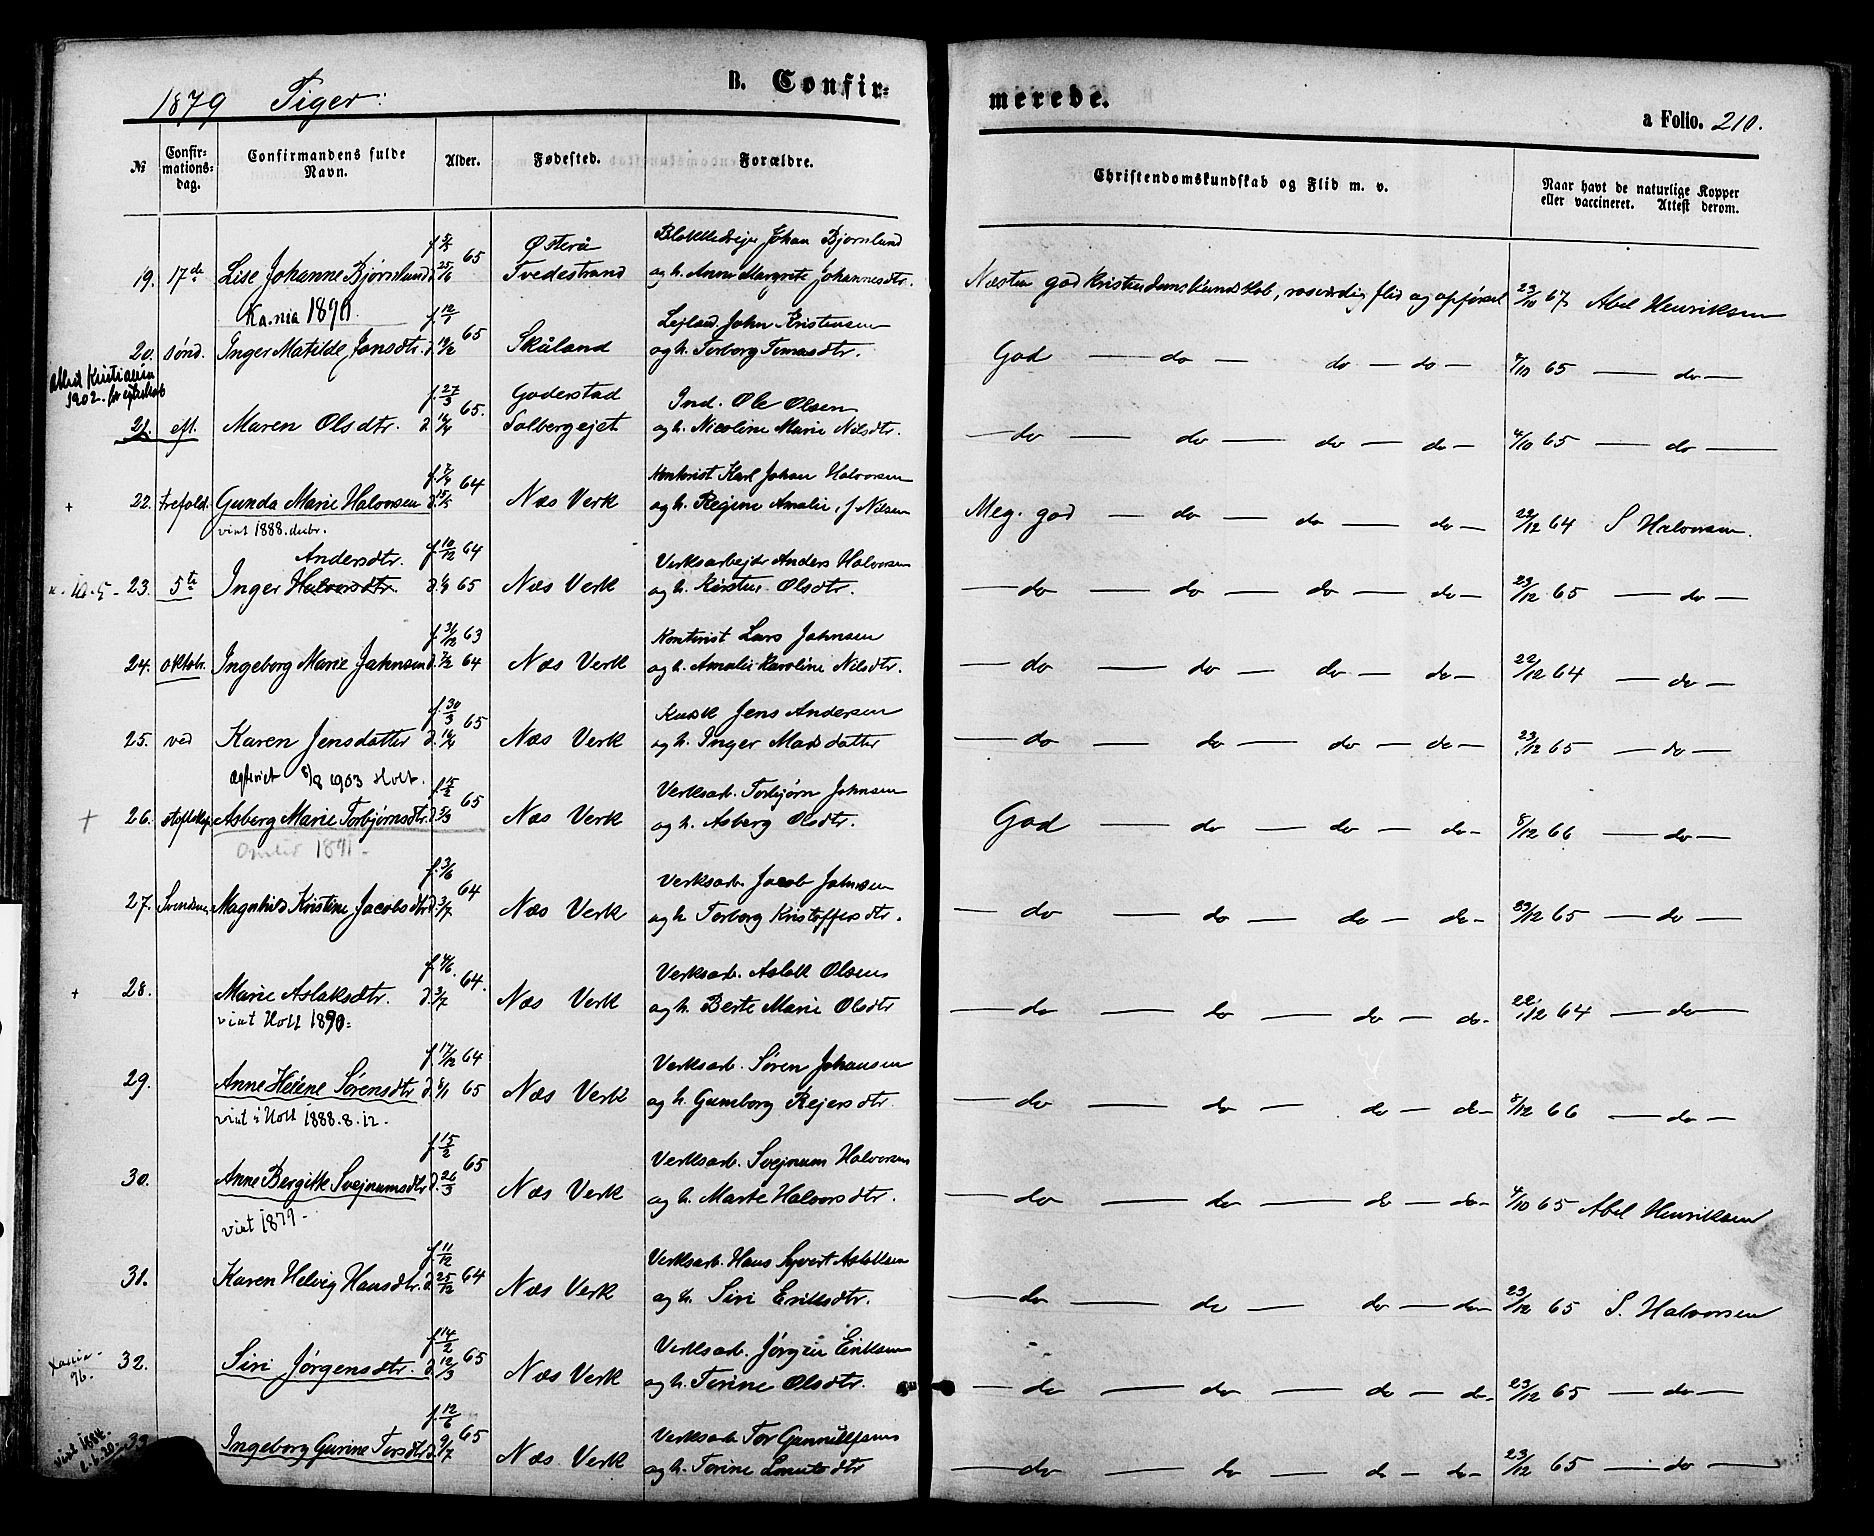 1879 Piger:
B. Confir-
merede.
a Folio. 210.
№ Confir-mations-dag. Confirmandens fulde Navn. Alder. Fødested. Forældre. Christendomskundskab og Flid m. v. Naar havt de naturlige Kopper eller vaccineret. Attest derom.
f. 65 Østerå Johan Bjørnlund
19. 17de Lise Johanne Bjørnlund d. 25/6 Tvedestrand og h. Anne Margrete Johannesdtr. Næsten god kristendomskundskab, rosværdig flid og opførsel 23/10 67 Abel Henriksen
Ka.nia 1890
f. 12/1 65 Lejland. John Kristensen
20. sønd. Inger Matilde Jonsdtr. d. 19/2 Skåland og h. Torborg Tomasdtr. God — do — do — do — 4/10 65 — do —
Attest Kristiania 1902. for egteskab
f. 27/3 65. Goderstad Ind. Ole Olsen
21. eft. Maren Olsdtr. d. 16/4 Solbergejet og h. Nicoline Marie Nilsdtr. — do — do — do — do — 4/10 65 — do —
f. 64 Kontorist Karl Johan Halvorsen
+ 22. trefold. Gunda Marie Halvorsen d. 15/5 Næs Verk og h. Regine Amalie, f. Nilsen Meg. god — do — do — do — 22/12 64 S. Halvorsen.
viet 1888. decbr.
Andersdtr. f. 10/12 64 Verksarbejder Anders Halvorsen
23. 5te Inger Halvorsdtr. d. 65 Næs Verk og h. Kirsten Olsdtr. — do — do — do — do — 23/12 65 — do —
f. 31/12 63 Kontorist Lars Johnsen
24. oktobr. Ingeborg Marie Johnsen d. 7/2 64 Næs Verk og h. Amalie Karoline Nilsdtr. — do — do — do — do — 22/12 64 — do —
f. 30/3 65 Kusk Jens Andersen
25. ved Karen Jensdatter d. 16/4 Næs Verk og h. Inger Madsdatter — do — do — do — do — 23/12 65 — do —
Ægteviet 1903 Holt.
f. 15/2 65 Verksarb. Torbjørn Johnsen
+ 26. Asberg Marie Torbjørnsdtr. d. 5/3 Næs Verk og h. Asberg Olsdtr. God — do — do — do — 8/12 66 — do —
1891 -
f. 3/6 64 Verksarb. Jacob Johnsen
27. Svendsen Magnhild Kristine Jacobsdtr. d. 3/7 Næs Verk og h. Torborg Kristoffersdtr. — do — do — do — do — 23/12 65 — do —
f. 4/6. 64. Verksarb. Aslak Olsen
+ 28. Marie Aslaksdtr. d. 3/7 Næs Verk og h. Berte Marie Olsdtr — do — do — do — do — 22/12 64 — do —
viet Holt 1890.
f. 17/12 64 Verksarb. Søren Johansen
29. Anne Helene Sørensdtr d. 8/1 65 Næs Verk og h. Gunborg Rejersdtr. — do — do — do — do — 8/12 66 — do —
viet i Holt 1888. 8. 12.
f. 15/2 65 Verksarb. Svejnum Halvorsen
30. Anne Bergitte Svejnumsdtr d. 26/3 Næs Verk og h. Marte Halvorsdtr. — do — do — do — do — 4/10 65 Abel Henriksen
viet 1879 -
f. 11/12 64 Verksarb. Hans Syvert Aslaksen
31. Karen Helvig Hansdtr. d. 25/12 Næs Verk og h. Siri Eriksdtr. — do — do — do — do — 23/12 65 S. Halvorsen
f. 14/2 65 Verksarb. Jørgen Eriksen
96. 32. Siri Jørgensdtr. d. 12/3 Næs Verk og h. Torine Olsdtr. — do — do — do — do — 23/12 65 — do —
f. 12/6 65 Verksarb. Tor Gunnulfsen
33 Ingeborg Gurine Torsdtr d. 9/7 Næs Verk og h. Torine Knutsdtr — do — do — do — do — 23/12 65 — do —